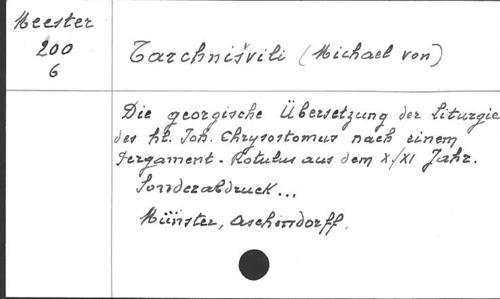 Meester
200
6
Tarchnišvili (Michael von)
Die georgische Übersetzung der Liturgie
des hl. Joh. Chrysostomus nach einem
Pergament-Rotulus aus dem X/XI Jahr.
Sonderabdruck...
Münster, Aschendorff.